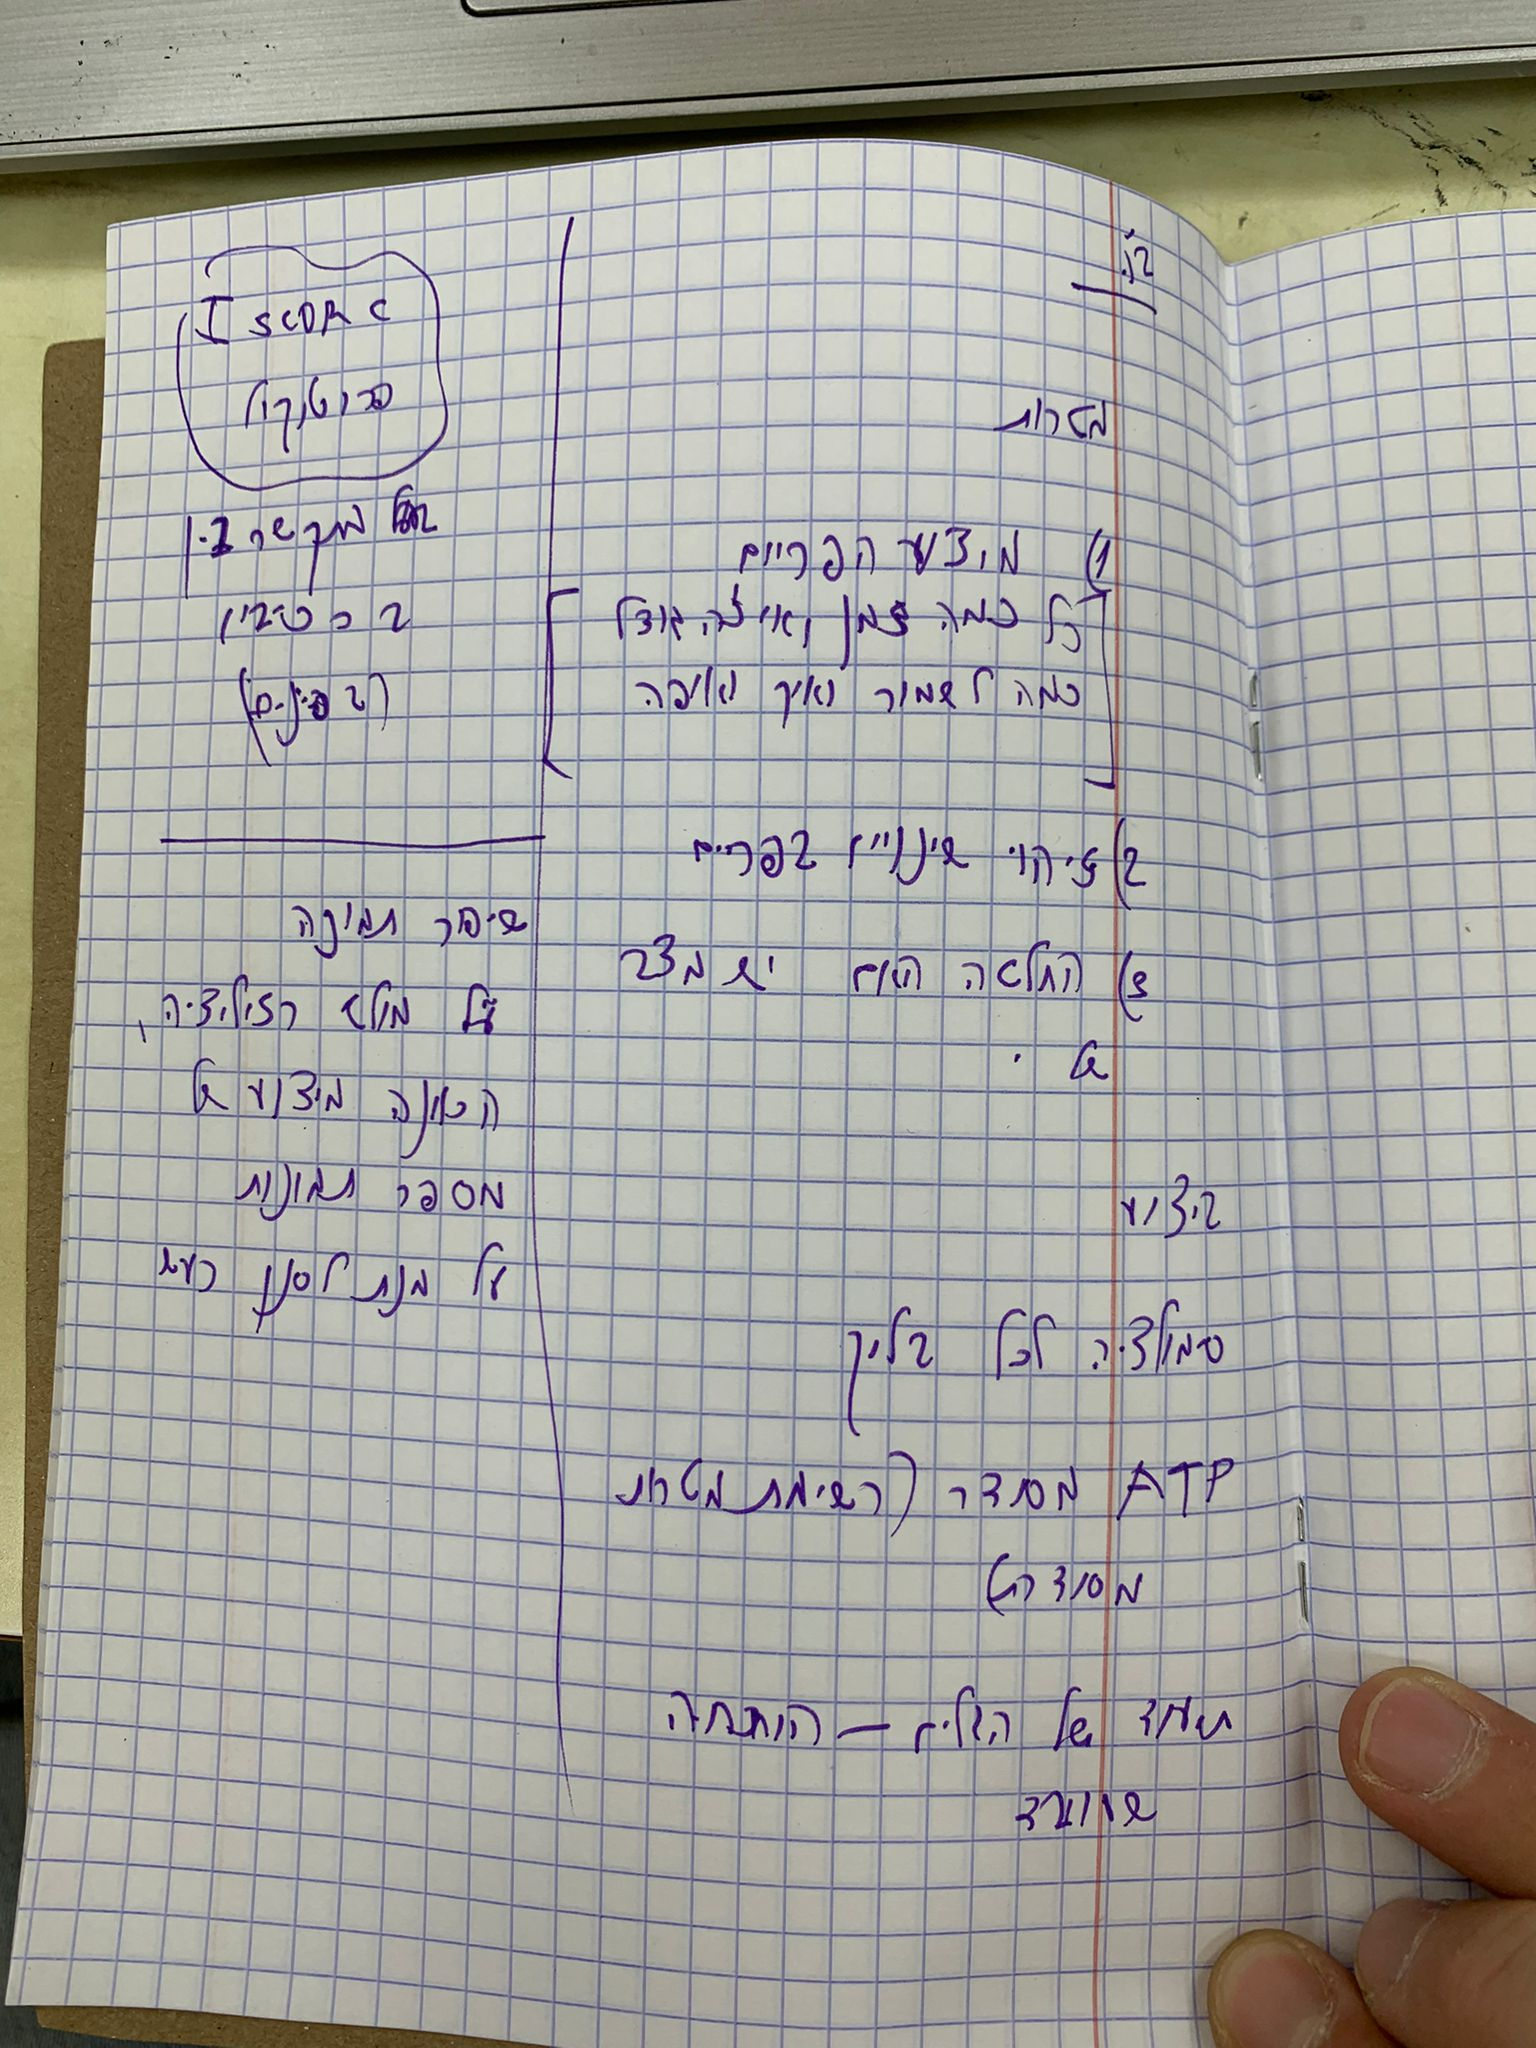 מטרות
1) מיצוע הפריים
[כל כמה זמן, ואיזה גודל
כמה לשמור ואיך ואיפה]
2) זיהוי שינויים בפריים
3) החלטה האם יש מצב
של
ביצוע
סמולציה לכל בליך
ATP מסודר (רשימת מטרות
מסודרת)
תיעוד של הגלים — התחלה
I SCORE
פרוטוקול
מקשר בין
2 רכיבים
שיפור תמונה
על מלא רזולוציה,
הכוונה מיצוע של
מספר תמונות
על מנת לסנן רעש